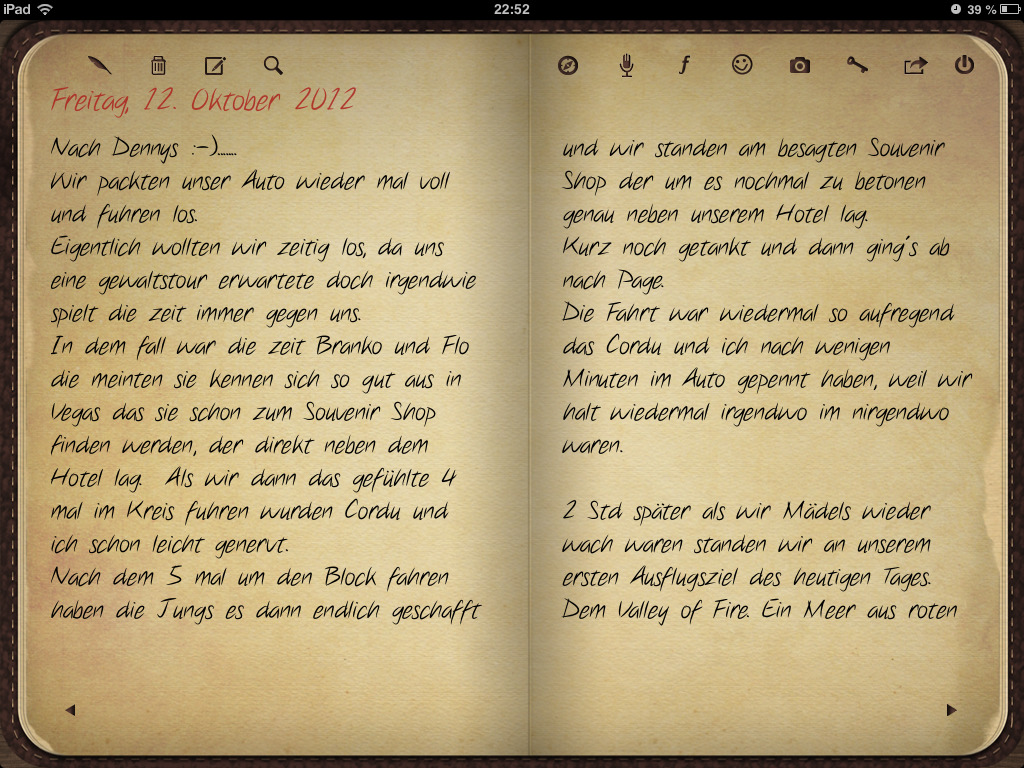 iPad
22:52
39 %
Freitag, 12. Oktober 2012
Nach Dennys :-).......
Wir packten unser Auto wieder mal voll
und fuhren los.
Eigentlich wollten wir zeitig los, da uns
eine gewaltstour erwartete doch irgendwie
spielt die zeit immer gegen uns.
In dem fall war die zeit Branko und Flo
die meinten sie kennen sich so gut aus in
Vegas das sie schon zum Souvenir Shop
finden werden, der direkt neben dem
Hotel lag.  Als wir dann das gefühlte 4
mal im Kreis fuhren wurden Cordu und
ich schon leicht genervt.
Nach dem 5 mal um den Block fahren
haben die Jungs es dann endlich geschafft
und wir standen am besagten Souvenir
Shop der um es nochmal zu betonen
genau neben unserem Hotel lag.
Kurz noch getankt und dann ging's ab
nach Page.
Die Fahrt war wiedermal so aufregend
das Cordu und ich nach wenigen
Minuten im Auto gepennt haben, weil wir
halt wiedermal irgendwo im nirgendwo
waren.
2 Std später als wir Mädels wieder
wach waren standen wir an unserem
ersten Ausflugsziel des heutigen Tages.
Dem Valley of Fire. Ein Meer aus roten